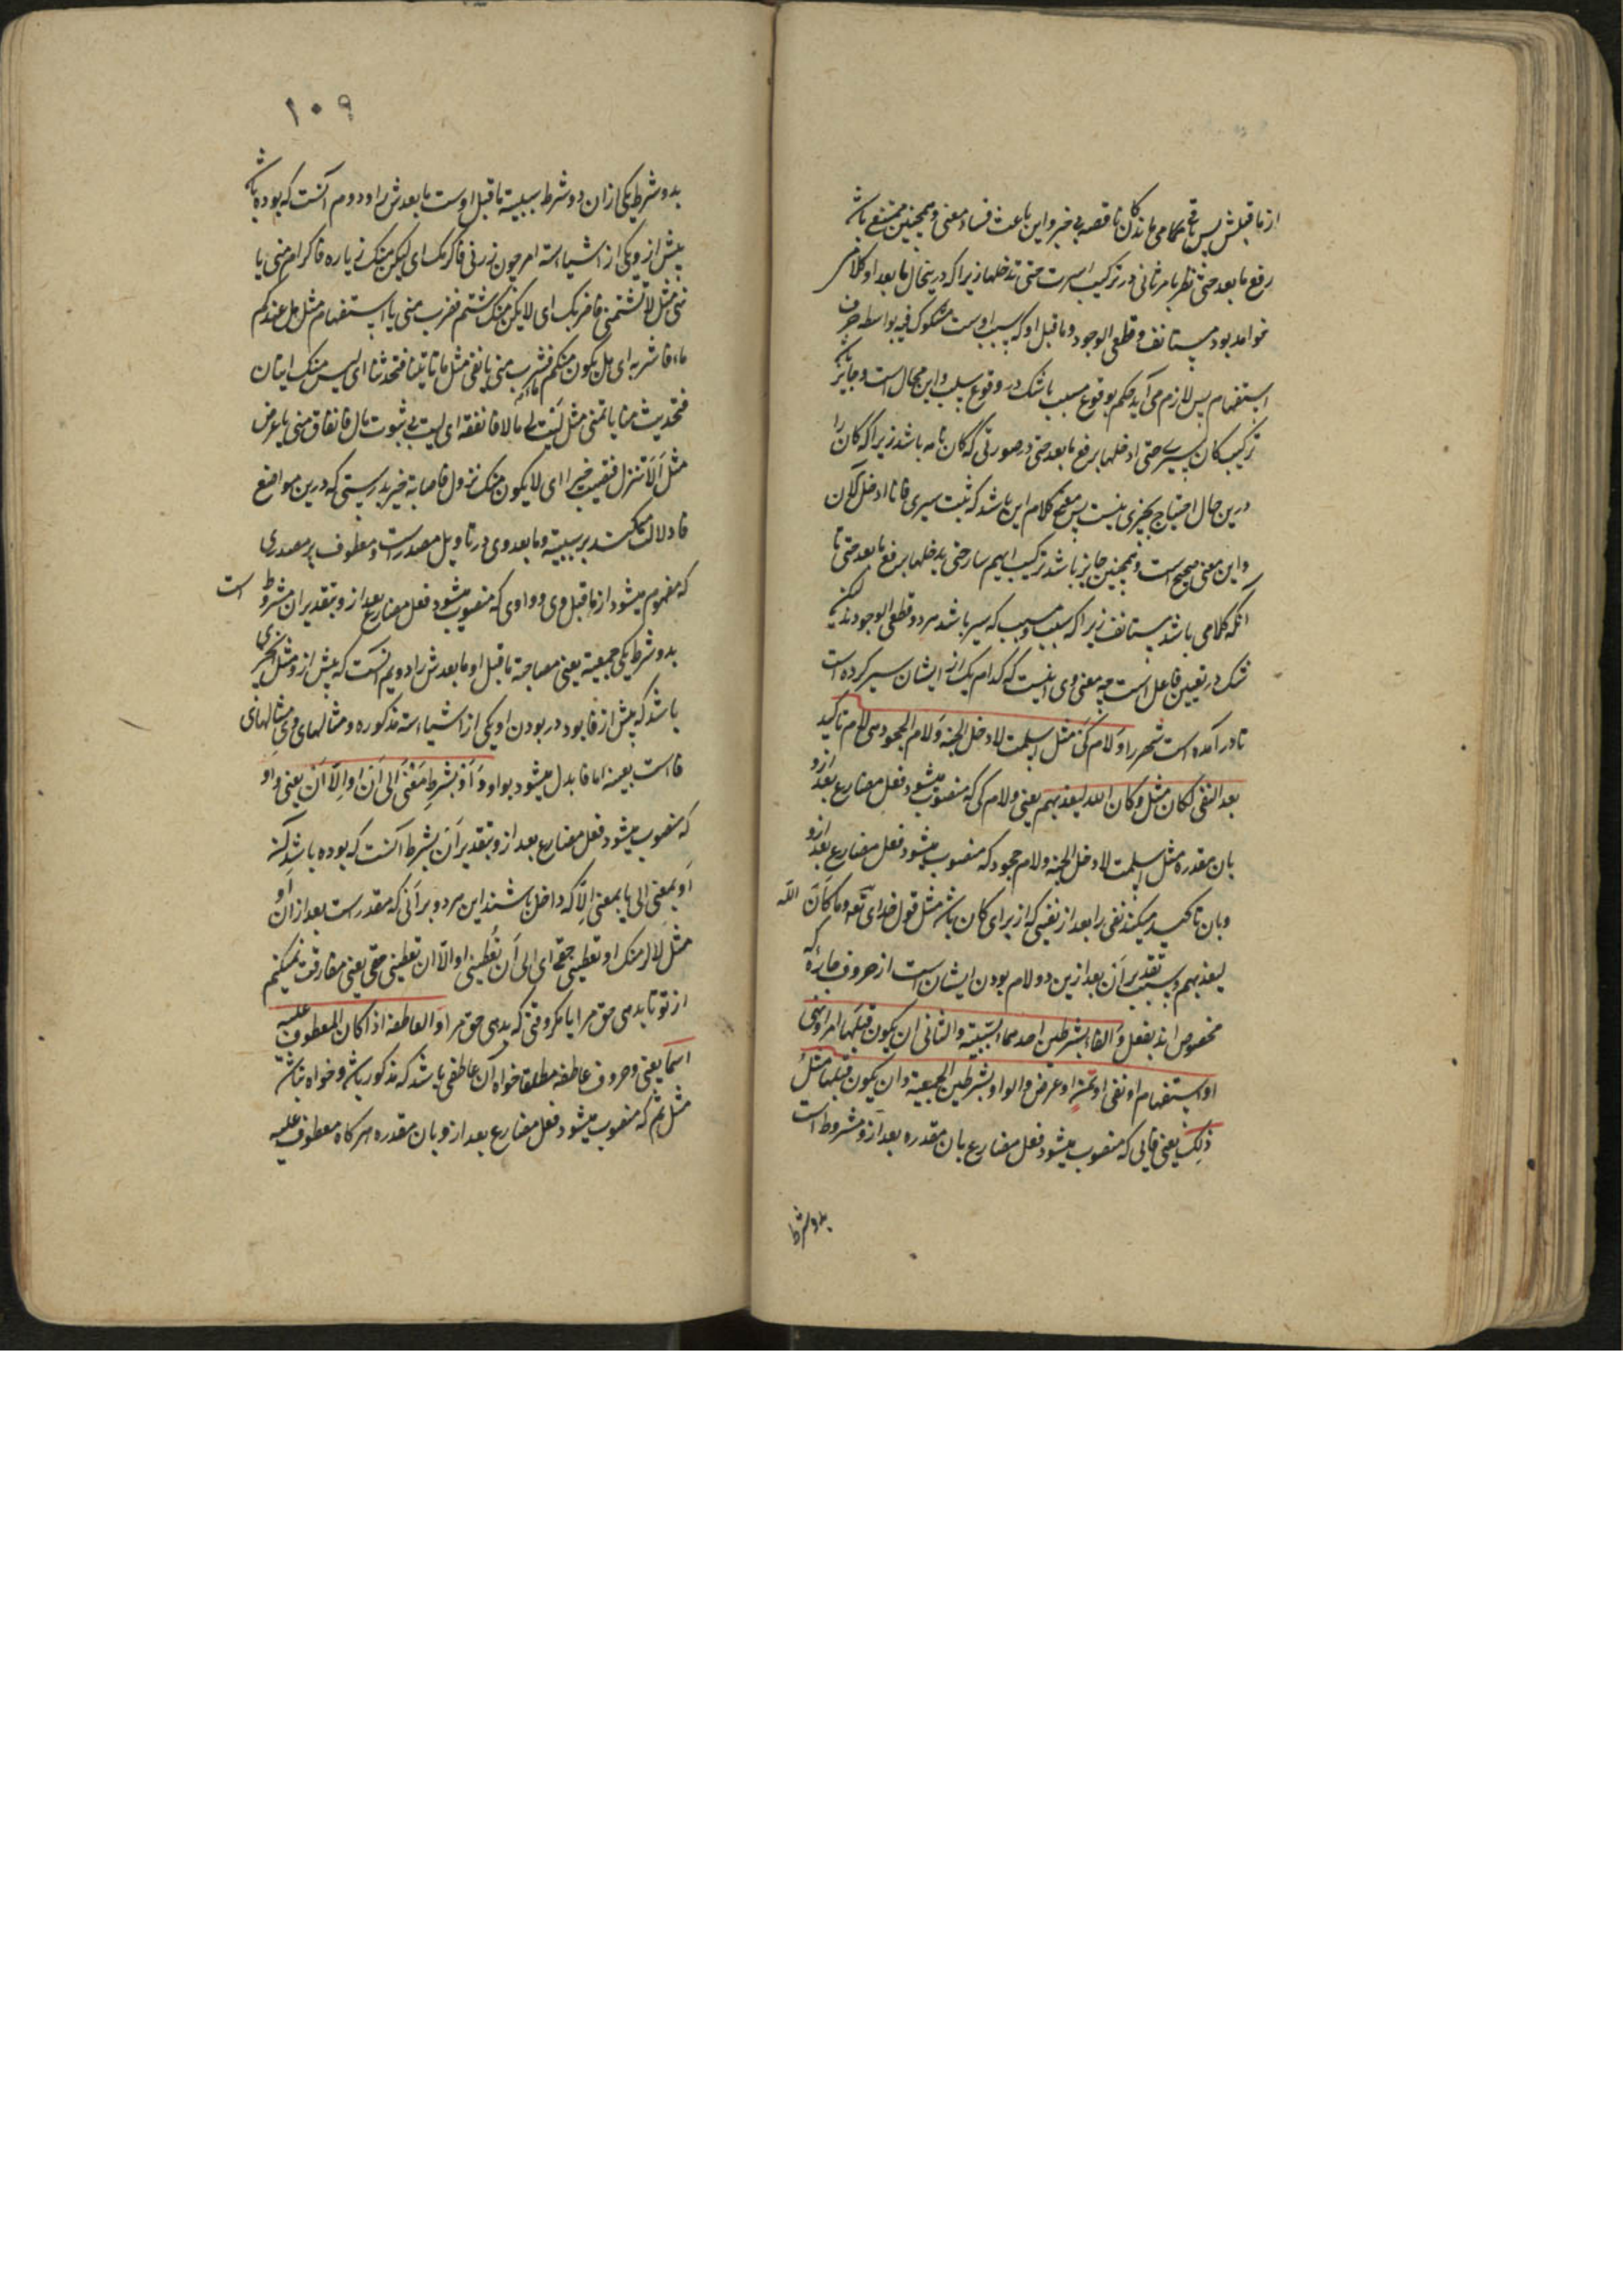 از ماقبلش پس باقی می ماند کان ناقصه بی خبر و این باعث فساد معنی و همچنین ممتنع باشد
رفع ما بعد حتی نظر بامر ثانی در ترکیب اسرت حتی تدخلها زیرا که درینحال ما بعد او کلامی
خواهد بود مستانف و قطعی الوجود و ماقبل او که سبب اوست مشکوک فیه بواسطه حرف
استفهام پس لازم می آید حکم بوقوع مسبب با شک در وقوع سبب و این محال است و جایز
ترکیب کان سیری حتی ادخلها برفع ما بعد حتی در صورتی که کان تامه باشد زیرا که کان را
درین حال احتیاج بخبری نیست پس معنی کلام این باشد که ثبت سیری فانا ادخل الان
و این معنی صحیح است و همچنین جایز باشد ترکیب ایهم سار حتی یدخلها برفع ما بعد حتی تا
آنکه کلامی باشد مستانف زیرا که سبب و مسبب که سیر باشد هر دو قطعی الوجودند لیکن
شک در تعیین فاعل است چه معنی وی اینست که کدام یک از ایشان سیر کرده است
تا در آمده است شهر را و لام کی مثل اسلمت لادخل الجنة و لام الجحود هی لام تاکید
بعد النفی لکان مثل و کان الله لیعذبهم یعنی و لام کی که منصوب میشود فعل مضارع بعد ازو
بان مقدره مثل اسلمت لادخل الجنة و لام جحود که منصوب میشود فعل مضارع بعد ازو
و بان تاکید میکند نفی را بعد از نفیی که از برای کان باشد مثل قول خدای تعه و ما کان الله
لیعذبهم و سبب تقدیر ان بعد ازین دو لام بودن ایشان است از حروف جاره که
مخصوص اند بفعل و الفاء بشرطین احدهما السببیة و الثانی ان یکون قبلها امر او نهی
او استفهام او نفی او تمن او عرض و الواو بشرطین الجمعیة و ان یکون قبلها مثل
ذلک یعنی فایی که منصوب میشود فعل مضارع بان مقدره بعد ازو مشروط است
بدو شرط
۱۰۹
بدو شرط یکی ازان دو شرط سببیة ماقبل اوست ما بعدش را و دوم آنست که بوده باشد
پیش از وی یکی از اشیاء سته امر چون زرنی فاکرمک ای لیکن منک زیاره فاکرام منی یا
نهی مثل لا تشتمنی فاضربک ای لا یکن منک شتم فضرب منی یا استفهام مثل هل عندکم
ماء فاشربه ای هل یکون منکم ماء فشرب منی یا نفی مثل ما تاتینا فتحدثنا ای لیس منک اتیان
فتحدیث منا یا تمنی مثل لیت لی مالا فانفقه ای لیت لی ثبوت مال فانفاق منی یا عرض
مثل الا تنزل فتصیب خیرا ای الا یکون منک نزول فاصابة خیر بدرستی که درین مواضع
فا دلالت میکند بر سببیة و ما بعد وی در تاویل مصدر است و معطوف بر مصدری
که مفهوم میشود از ماقبل وی و واوی که منصوب میشود فعل مضارع بعد ازو بتقدیر ان مشروط است
بدو شرط یکی جمعیة یعنی مصاحبة ماقبل او ما بعدش را دویم آنست که پیش ازو مثل آن چیزی
باشد که پیش از فا بود در بودن او یکی از اشیاء سته مذکوره و مثالهای وی مثالهای
فا است بعینه اما فا بدل میشود بواو و او بشرط معنی الی ان او الا ان یعنی و او
که منصوب میشود فعل مضارع بعد ازو بتقدیر ان بشرط آنست که بوده باشد آن
او بمعنی الی یا بمعنی الا که داخل باشند این هر دو بر آنی که مقدر است بعد ازان او
مثل لالزمنک او تعطینی حقی ای الی ان تعطینی او الا ان تعطینی حقی یعنی مفارقت نمیکنم
از تو تا بدهی حق مرا یا مگر وقتی که بدهی حق مرا و العاطفة اذا کان المعطوف علیه
اسما یعنی و حروف عاطفه مطلقا خواه آن عاطفی باشد که مذکور باشد و خواه نباشد
مثل ثم که منصوب میشود فعل مضارع بعد ازو بان مقدره هرکاه معطوف علیه